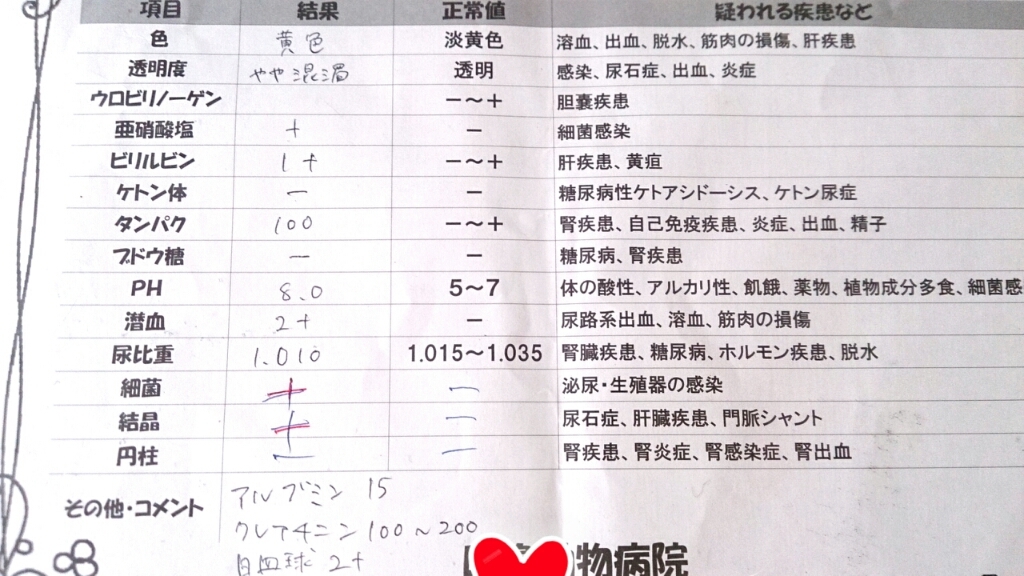 項目 結果 正常値 疑われる疾患など
色 黄色 淡黄色 溶血、出血、脱水、筋肉の損傷、肝疾患
透明度 やや混濁 透明 感染、尿石症、出血、炎症
ウロビリノーゲン －～＋ 胆嚢疾患
亜硝酸塩 + － 細菌感染
ビリルビン 1+ －～＋ 肝疾患、黄疸
ケトン体 － － 糖尿病性ケトアシドーシス、ケトン尿症
タンパク 100 －～＋ 腎疾患、自己免疫疾患、炎症、出血、精子
ブドウ糖 － － 糖尿病、腎疾患
PH 8.0 5～7 体の酸性、アルカリ性、飢餓、薬物、植物成分多食、細菌感
潜血 2+ － 尿路系出血、溶血、筋肉の損傷
尿比重 1.010 1.015～1.035 腎臓疾患、糖尿病、ホルモン疾患、脱水
細菌 + － 泌尿・生殖器の感染
結晶 + － 尿石症、肝臓疾患、門脈シャント
円柱 － － 腎疾患、腎炎症、腎感染症、腎出血
その他・コメント アルブミン 15
クレアチニン 100～200
白血球 2+
物病院